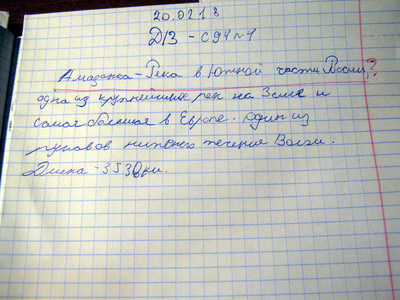 20.02.18
Д/З - с 94 №1
Амазонка - Река в Южной части России,?
одна из крупнейших рек на Земле и
самая большая в Европе. один из
рукавов нижнего течения Волги.
Длина - 3530км.